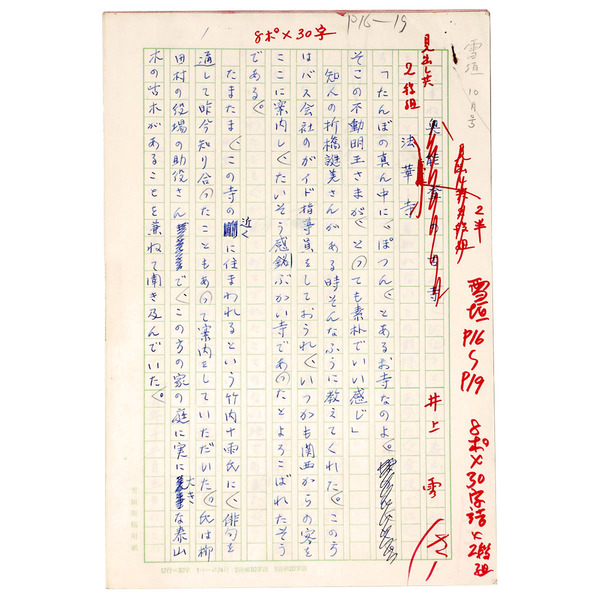 雪垣 10月号
雪垣
P16〜P19
8ポ×30字詰×2段組
2半
井上雪
見出し共
2段組
法華寺
8ポ×30字
P16―19
「たんぼの真ん中に、ぽつんとあるお寺なのよ。
そこの不動明王さまが、とっても素朴でいい感じ」
知人の折橋さんがある時そんなふうに教えてくれた。この方
はバス会社のガイド指導員をしておられ、いつかも関西からの客を
ここに案内し、たいそう感銘ぶかい寺であったとよろこばれたそう
である。
たまたま、この寺の近くに住まわれるという竹内十雨氏に、俳句を
通して昨今知り合ったこともあって案内をしていただいた。氏は柳
田村の役場の助役さんで、この方の家の庭に実に大きな泰山
木の古木があることを兼ねて聞き及んでいた。